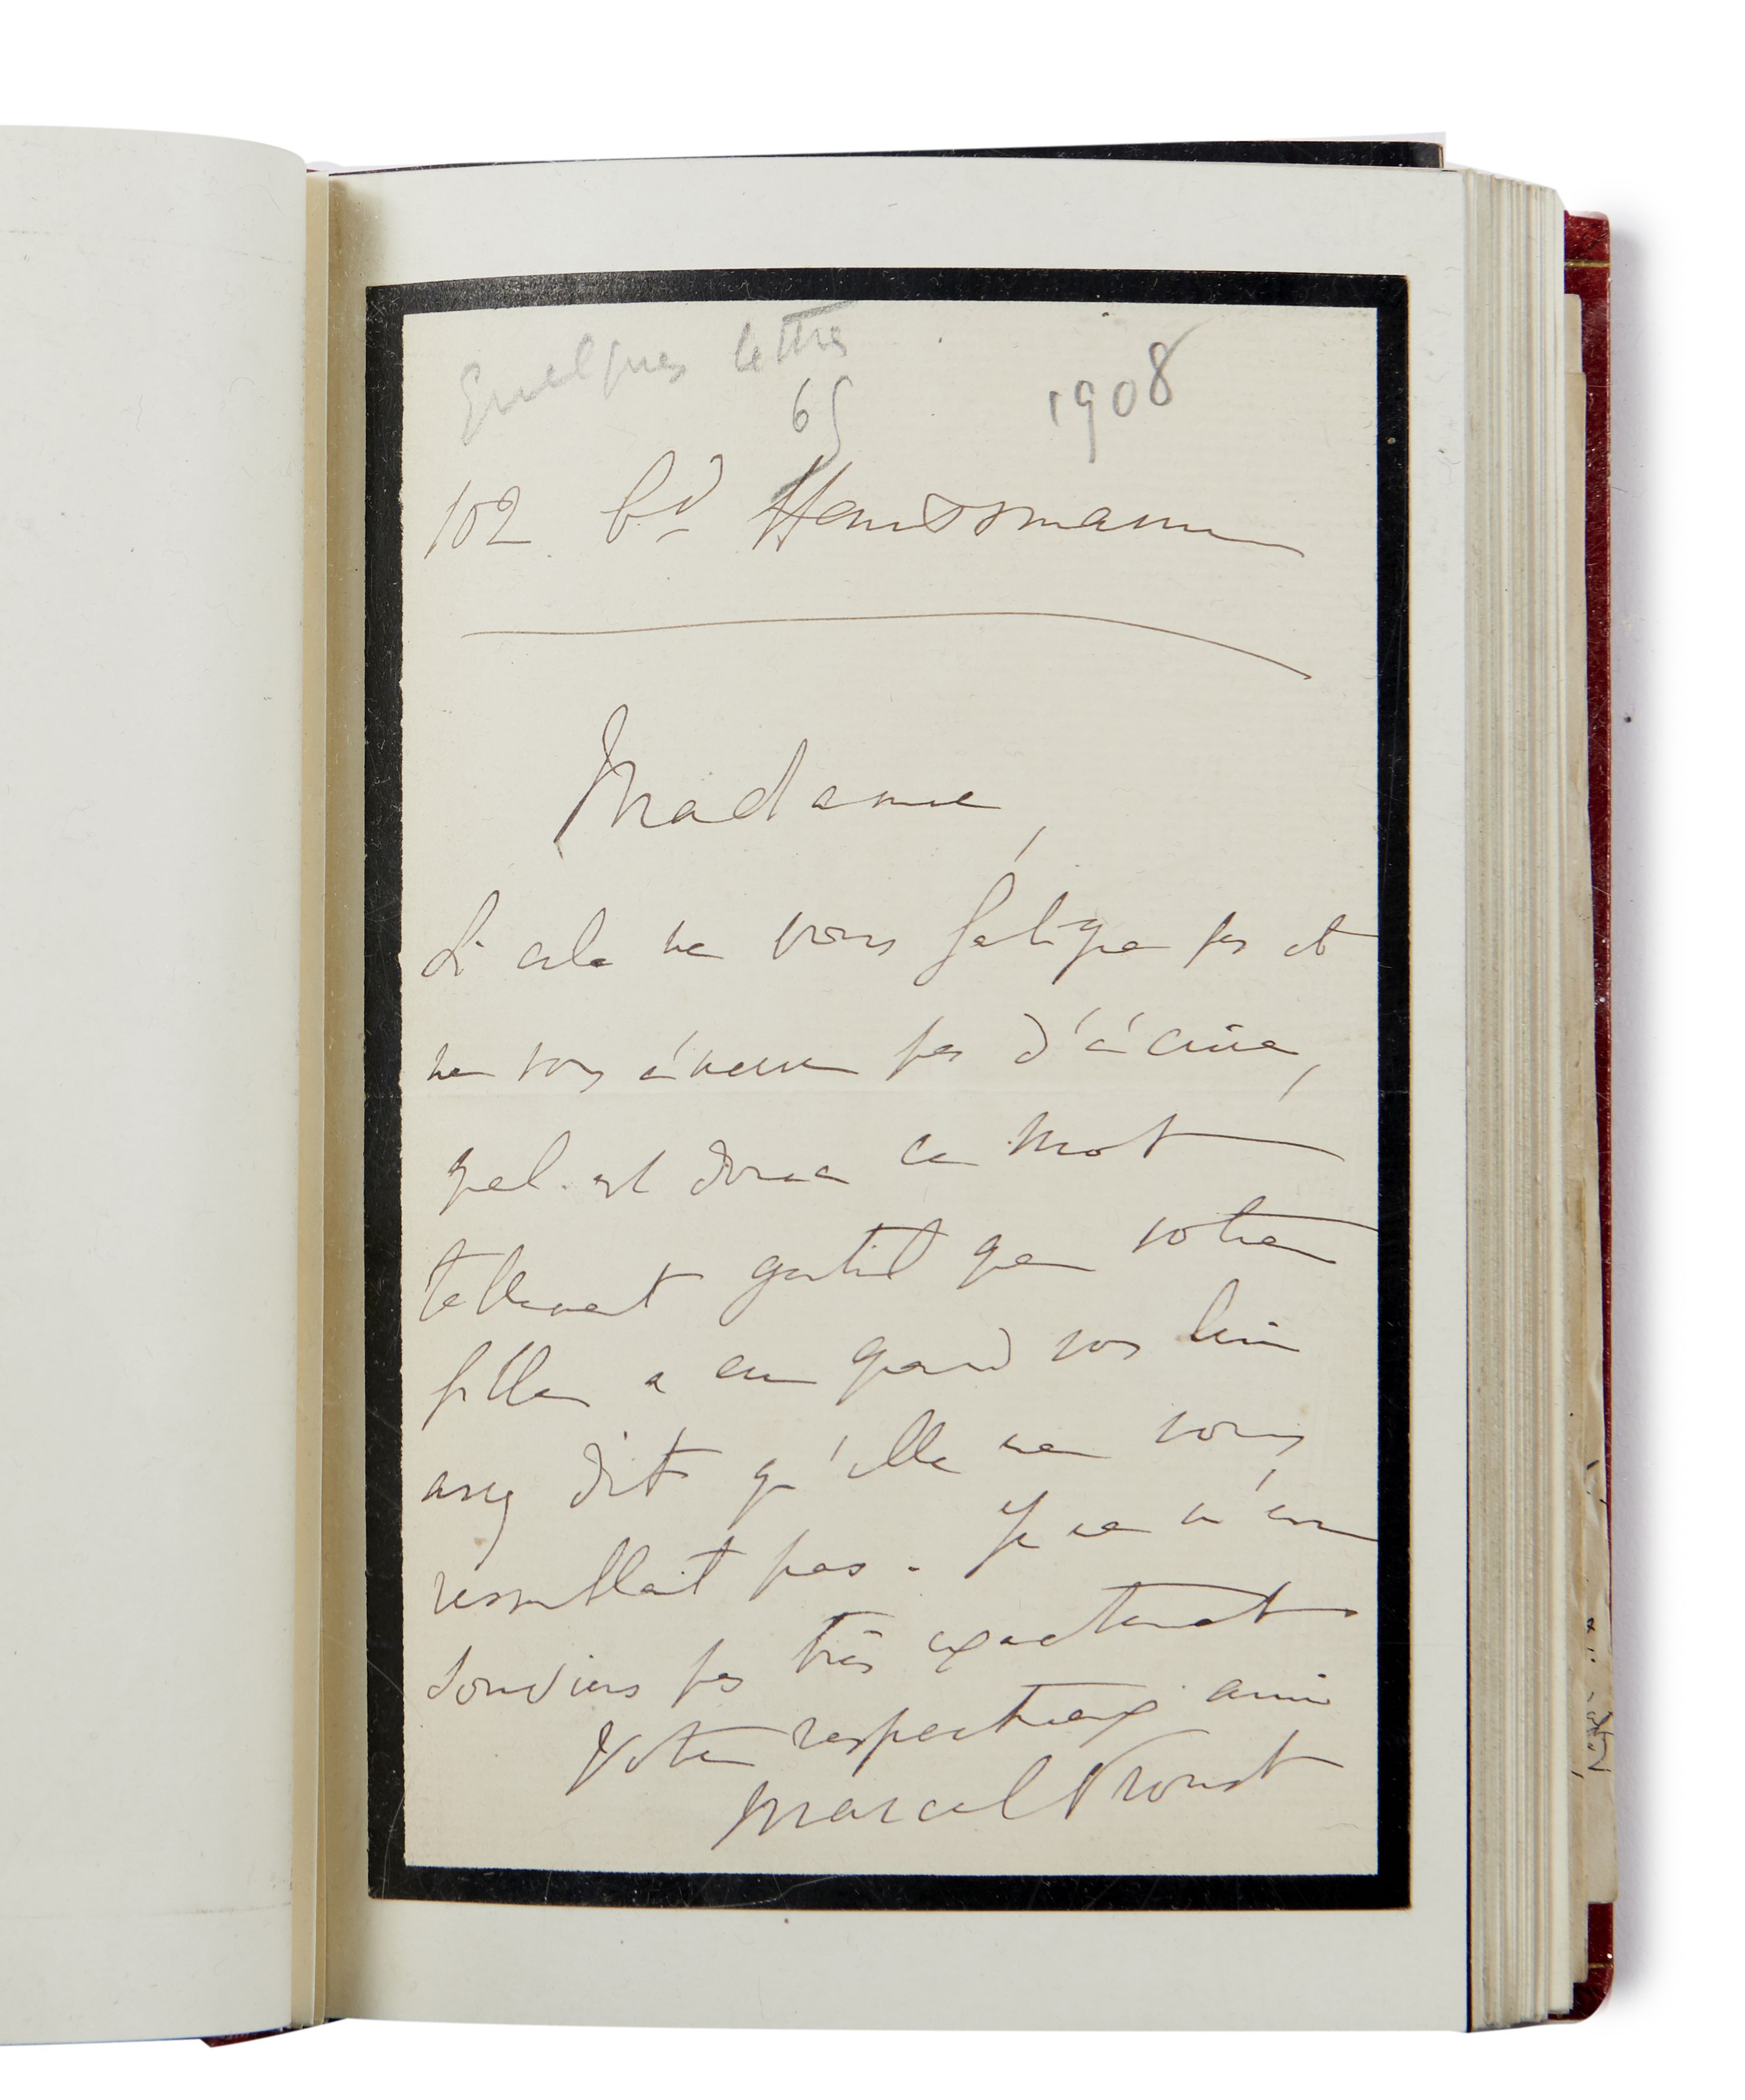 Quelques lettres
65
1908
102 bd Haussmann
Madame,
Si cela ne vous fatigue pas et
ne vous énerve pas d'écrire,
quel est donc ce mot
tellement gentil que votre
fille a eu quand vous lui
avez dit qu'elle ne vous
ressemblait pas. Je ne m'en
souviens pas très exactement
Votre respectueux ami
Marcel Proust